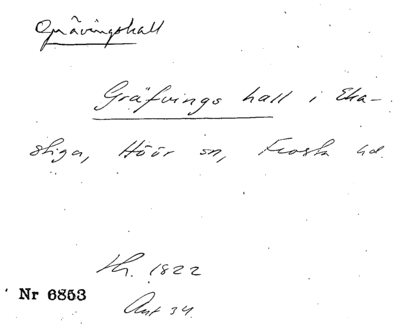 Grävingshall
Gräfvings hall i Eka-
stiga, Höör sn, Frosta hd.
Lh. 1822
Nr 6853
Ant 34.